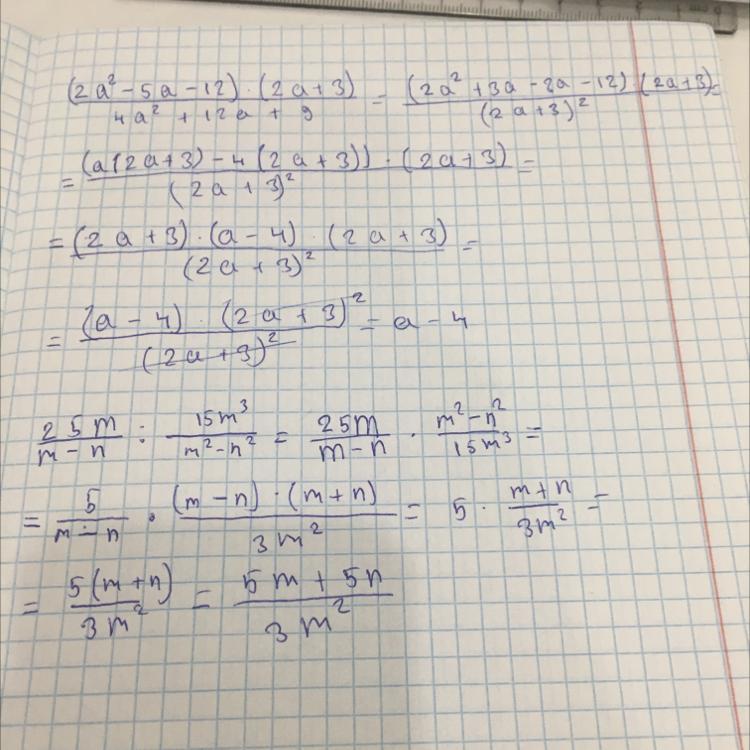 (2a² - 5a - 12) · (2a + 3) / 4a² + 12a + 9 = (2a² + 3a - 8a - 12) (2a + 3) / (2a + 3)² =
= (a(2a + 3) - 4(2a + 3)) · (2a + 3) / (2a + 3)² =
= (2a + 3) · (a - 4) · (2a + 3) / (2a + 3)² =
= (a - 4) · (2a + 3)² / (2a + 3)² = a - 4
25m / m - n : 15m³ / m² - n² = 25m / m - n · m² - n² / 15m³ =
= 5 / m - n · (m - n) · (m + n) / 3m² = 5 · m + n / 3m² =
= 5(m + n) / 3m² = 5m + 5n / 3m²